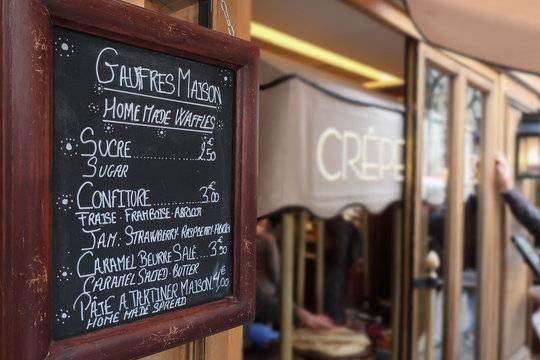 GAUFRES MAISON
HOME MADE WAFFLES
SUCRE 2,50 €
SUGAR
CONFITURE 3,00 €
FRAISE - FRAMBOISE - ABRICOT
JAM - STRAWBERRY - RASPBERRY -
CARAMEL BEURRE SALE 3,50 €
CARAMEL SALTED BUTTER
PÂTE A TARTINER MAISON 4,00 €
HOME MADE SPREAD
CRÊPE